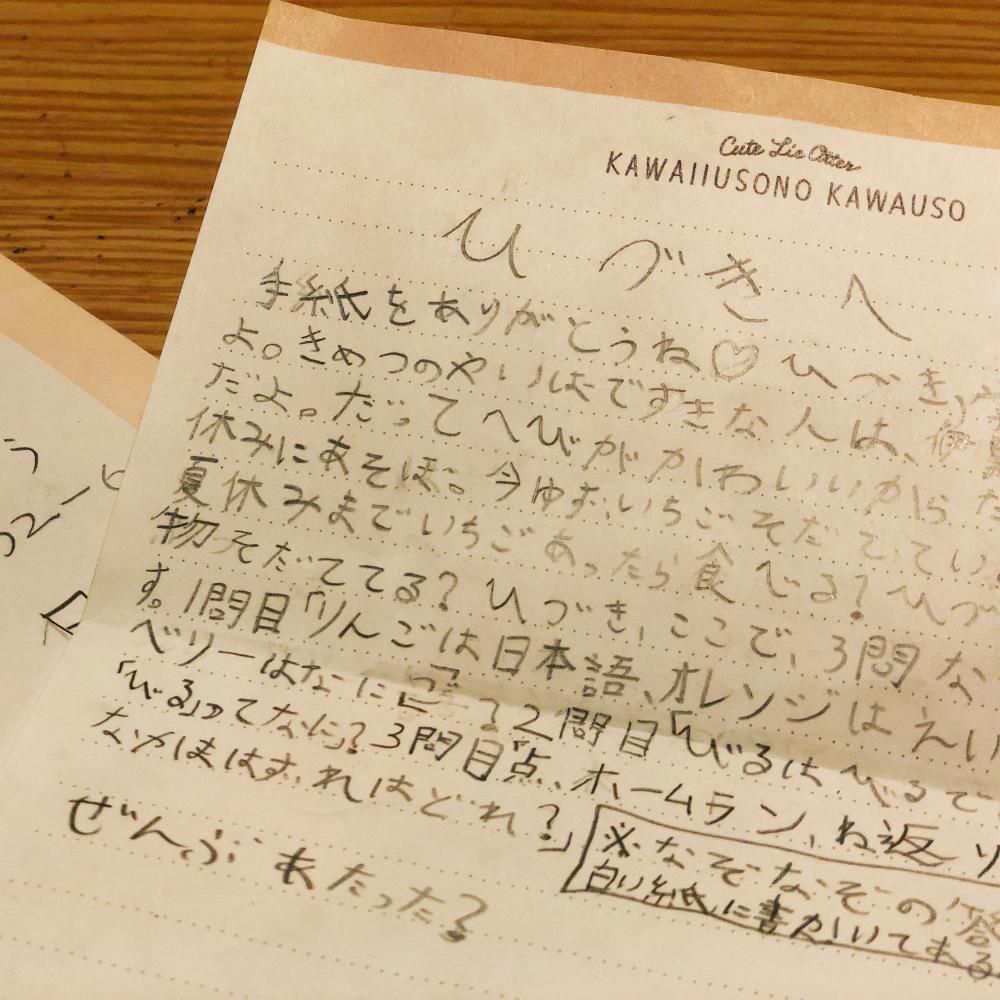 Cute Lie Otter
KAWAIIUSONO KAWAUSO
ひづきへ
手紙をありがとうね♡ ひづき、
よ。きめつのやいばですきな人は、
だよ。だってへびがかわいいからだ
休みにあそぼ。今ゆずいちごそだててい
夏休みまでいちごあったら食べる? ひづ
物そだててる? ひづき、ここで、3問な
す。1問目「りんごは日本語、オレンジはえい
ベリーはなにご? 2問目「びるはべるで
「びる」ってなに? 3問目「点、ホームラン、ね返り
なかまはずれはどれ?」
※なぞなぞの答
白い紙に書かいてある
ぜんぶ あたった?